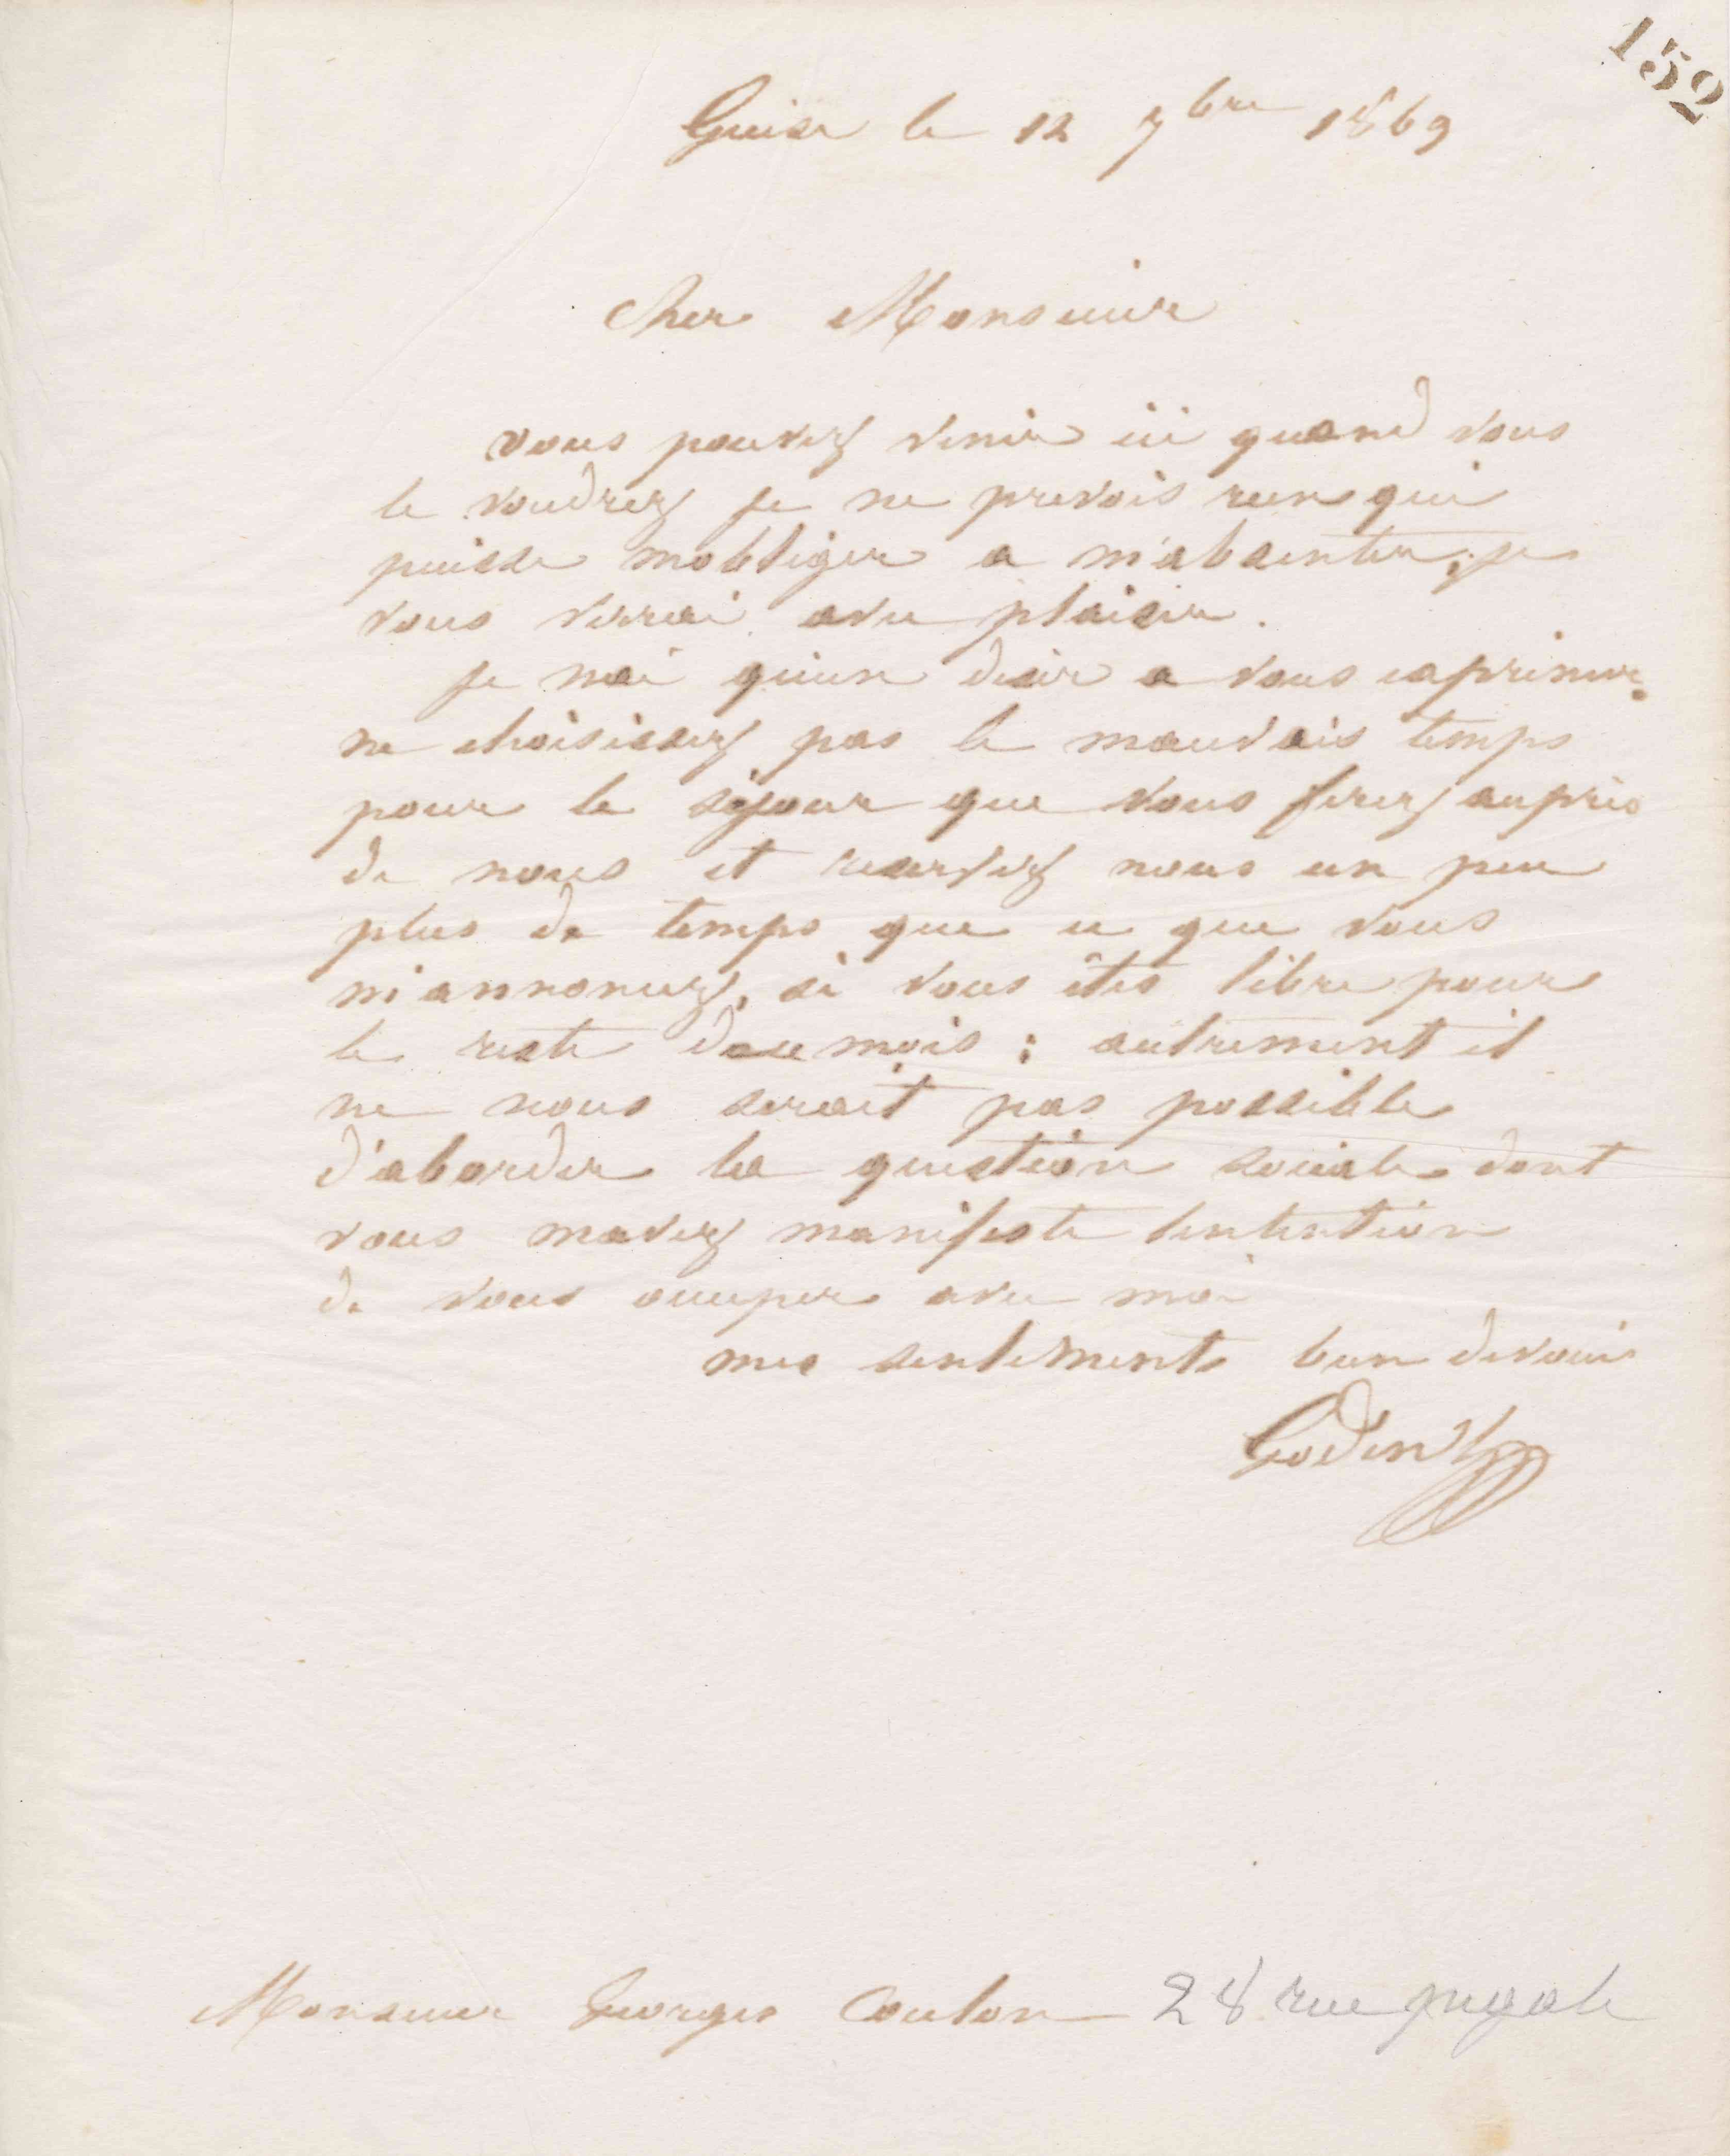 152
Guise le 12 7bre 1869
Cher Monsieur
vous pouvez venir ici quand vous
le voudrez je ne prevois rien qui
puisse mobliger a m'absenter ; je
vous verrai avec plaisir.
je nai qu'un desir a vous exprimer :
ne choisissez pas le mauvais temps
pour le séjour que vous ferez auprès
de nous et reservez nous un peu
plus de temps que ce que vous
m'annoncez, si vous êtes libre pour
le reste du mois : autrement il
ne nous serait pas possible
d'aborder la question sociale dont
vous mavez manifeste lintention
de vous occuper avec moi
mes sentiments bien devoués
Godin
Monsieur Georges Coulon 28 rue pigale